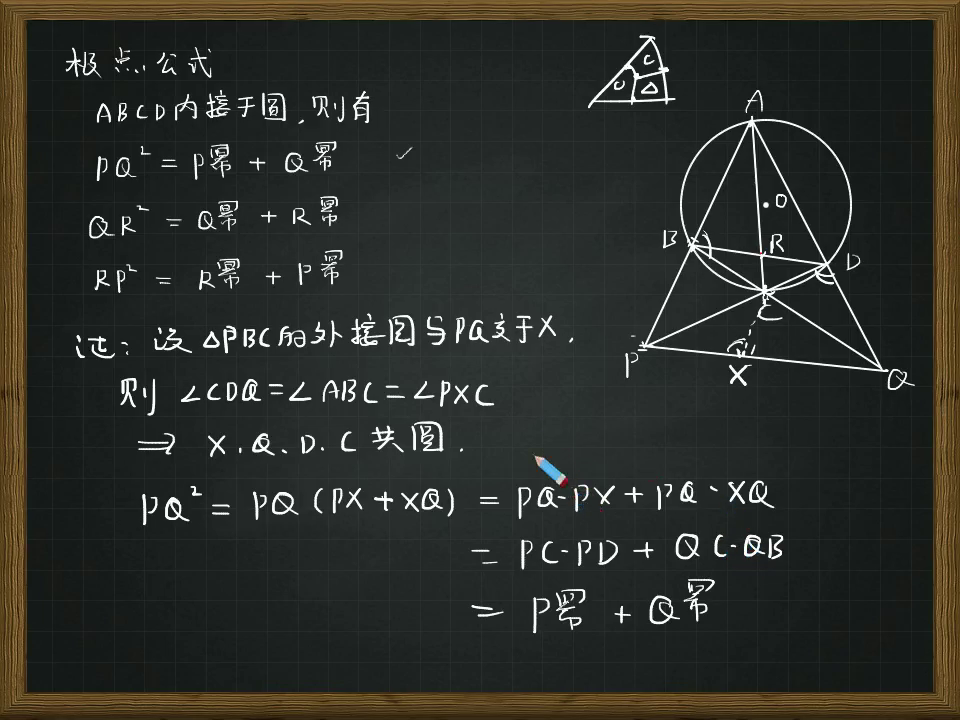 极点公式
ABCD内接于圆,则有
PQ² = P幂 + Q幂
QR² = Q幂 + R幂
RP² = R幂 + P幂
证: 设 △PBC的外接圆与PQ交于X,
则 ∠CDQ = ∠ABC = ∠PXC
⇒ X.Q.D.C共圆.
PQ² = PQ (PX + XQ) = PQ·PX + PQ·XQ
= PC·PD + QC·QB
= P幂 + Q幂
C
O △
A
O
B R D
C
P X Q